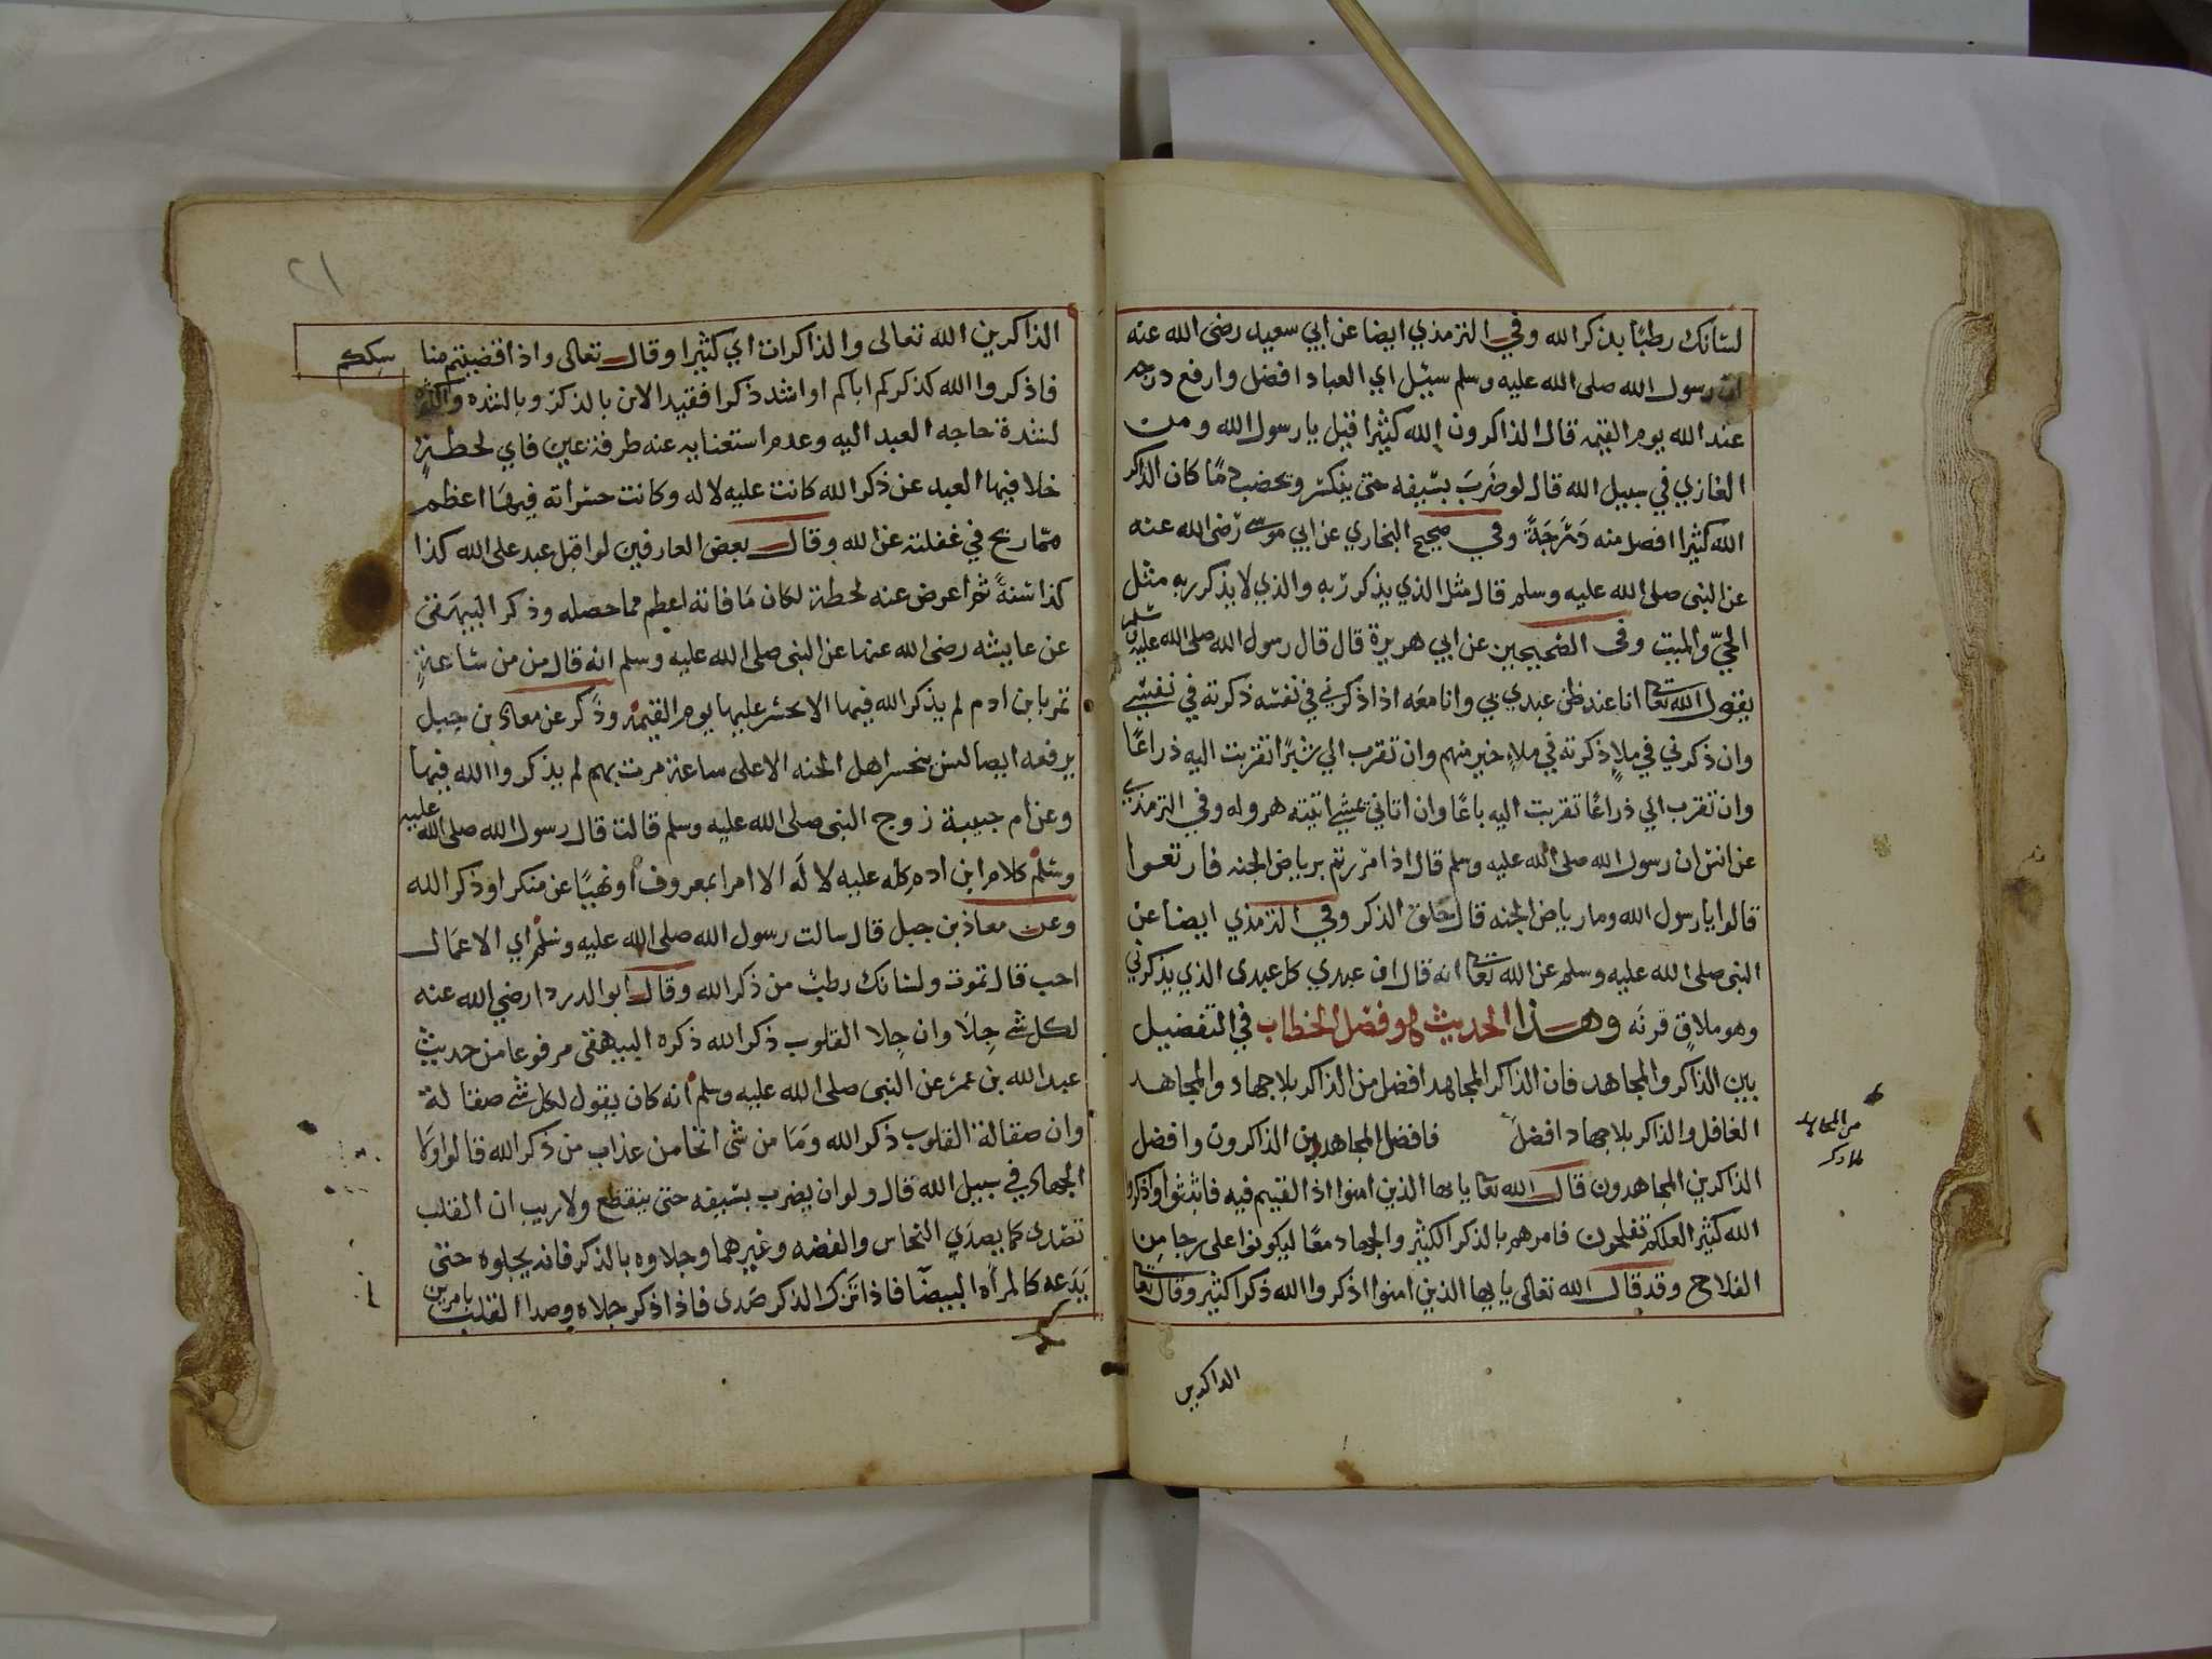 لسانك رطبًا بذكر الله وفي الترمذي ايضا عن ابي سعيد رضى الله عنه
ان رسول الله صلى الله عليه وسلم سئل اي العباد افضل وارفع درجه
عند الله يوم القيمه قال الذاكرون الله كثيرا قيل يا رسول الله ومن
الغازي في سبيل الله قال لو ضَربَ بسَيفه حتى ينكسر ويخضب دمًا كان الذاكر
الله كثيرا افضل منه دَرَجَةً وفي صحيح البخاري عن ابي موسى رضى الله عنه
عن النبى صلى الله عليه وسلم قال مثل الذي يذكر ربه والذي لا يذكر ربه مثل
الحيّ والميت وفى الصَحيحين عن ابي هريرة قال قال رسول الله صلى الله عليه وسلم
يقول الله تعالى انا عند ظن عبدي بي وانا معَه اذا ذكرني في نفسَه ذكرته في نفسَي
وان ذكرني في ملاءٍ ذكرته في ملاءٍ خير منهم وان تقرب الي شبرًا تقربت اليه ذراعًا
وان تقرب الي ذراعًا تقربت اليه باعًا وان اتاني يمشي اتيته هروله وفي الترمذي
عن انس ان رسول الله صلى الله عليه وسلم قال اذا مررتم برياض الجنه فارتعوا
قالوا يا رسول الله وما رياض الجنه قال حَلق الذكر وفي الترمذي ايضا عن
النبى صلى الله عليه وسلم عن الله تعالى انه قال ان عبدي كل عبدى الذي يذكرني
وهو ملاقٍ قرنَه وهذا الحديث هو فصل الخطاب في التفضيل
بين الذاكر والمجاهد فان الذاكر المجاهد افضل من الذاكر بلا جهاد والمجاهد
الغافل والذاكر بلا جهاد افضلُ فافضل المجاهدين الذاكرون وافضل
من المجاهد
بلا ذكر
الذاكرين المجاهدون قال الله تعا يايها الذين امنوا اذا لقيتم فيه فاثبتوا واذكروا
الله كثيرا لعلكم تفلحون فامرهم بالذكر الكثير والجهاد معًا ليكونوا على رجا من
الفلاح وقد قال الله تعالى يايها الذين امنوا اذكروا الله ذكرا كثيرا وقال تعا
الذاكرين
٢١
الذاكرين الله تعالى والذاكرات اي كثيرا وقال تعالى واذا قضيتم منا سككم
فاذكروا الله كذكركم اباكم او اشد ذكرا فقيد الامر بالذكر وبالشده والكثره
لشدة حاجه العبد اليه وعدم استغنايه عنه طرفة عين فاي لحظةٍ
خلا فيها العبد عن ذكر الله كانت عليه لا له وكانت حسَراته فيهَا اعظم
ممّا ربح في غفلته عن الله وقال بعض العارفين لو اقبل عبد على الله كذا
كذا سَنةً ثم اعرض عنه لحظة لكان مَا فاته اعظم مما حصله وذكر البيهَقى
عن عايشه رضى الله عنها عن النبى صلى الله عليه وسلم انه قال من من سَاعةٍ
تمر بابن ادم لم يذكر الله فيها الا حسر عليها يوم القيمة وذكر عن معاذ بن جبل
يرفعه ايضا ليس يتحسر اهل الجنه الا على ساعة مرت بهم لم يذكروا الله فيها
وعن ام حبيبة زوج النبى صلى الله عليه وسلم قالت قال رسول الله صلى الله عليه
وسلم كلام ابن ادم كله عليه لا لَه الا امرا بمعروف او نهيًا عن منكر او ذكر الله
وعن معاذ بن جبل قال سالت رسول الله صلى الله عليه وسَلم اي الاعمَال
احب قال تموت ولسَانك رطبٌ من ذكر الله وقال ابو الدردا رضي الله عنه
لكل شے جِلَا وان جِلا القلوب ذكر الله ذكره البيهقى مرفوعا من حديث
عبد الله بن عمر عن النبى صلى الله عليه وسلم انه كان يقول لكل شے صقالة
وان صقالة القلوب ذكر الله وَمَا من شى انجا من عذاب من ذكر الله قالوا ولا
الجهاد في سبيل الله قال ولو ان يضرب بسَيفه حتى ينقطع ولا ريب ان القلب
تصَدى كما يصدَي النحاس والفضه وغيرهما وجلاوه بالذكر فانه يجلوه حتى
يَدَعه كالمراة البيضآ فاذا تَرك الذكر صَدى فاذا ذكر جلاه وصدا القلب بامرين